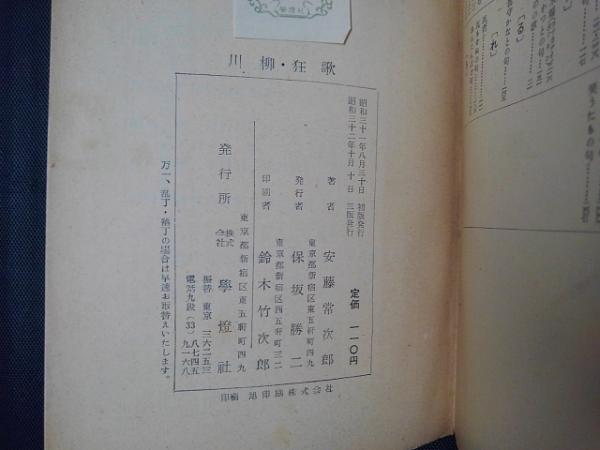 川柳・狂歌
昭和三十一年八月三十日 初版発行
昭和三十二年十月十日 三版発行
定価 一一〇円
著者 安藤常次郎
東京都新宿区東五軒町四九
発行者 保坂勝二
東京都新宿区西五軒町三二
印刷者 鈴木竹次郎
東京都新宿区東五軒町四九
発行所 株式会社 學燈社
振替 東京 三六二五三
電話九段(33) 八七四五
九一六八
印刷 旭印刷株式会社
万一、乱丁・落丁の場合は早速お取替えいたします。
【る】
【れ】